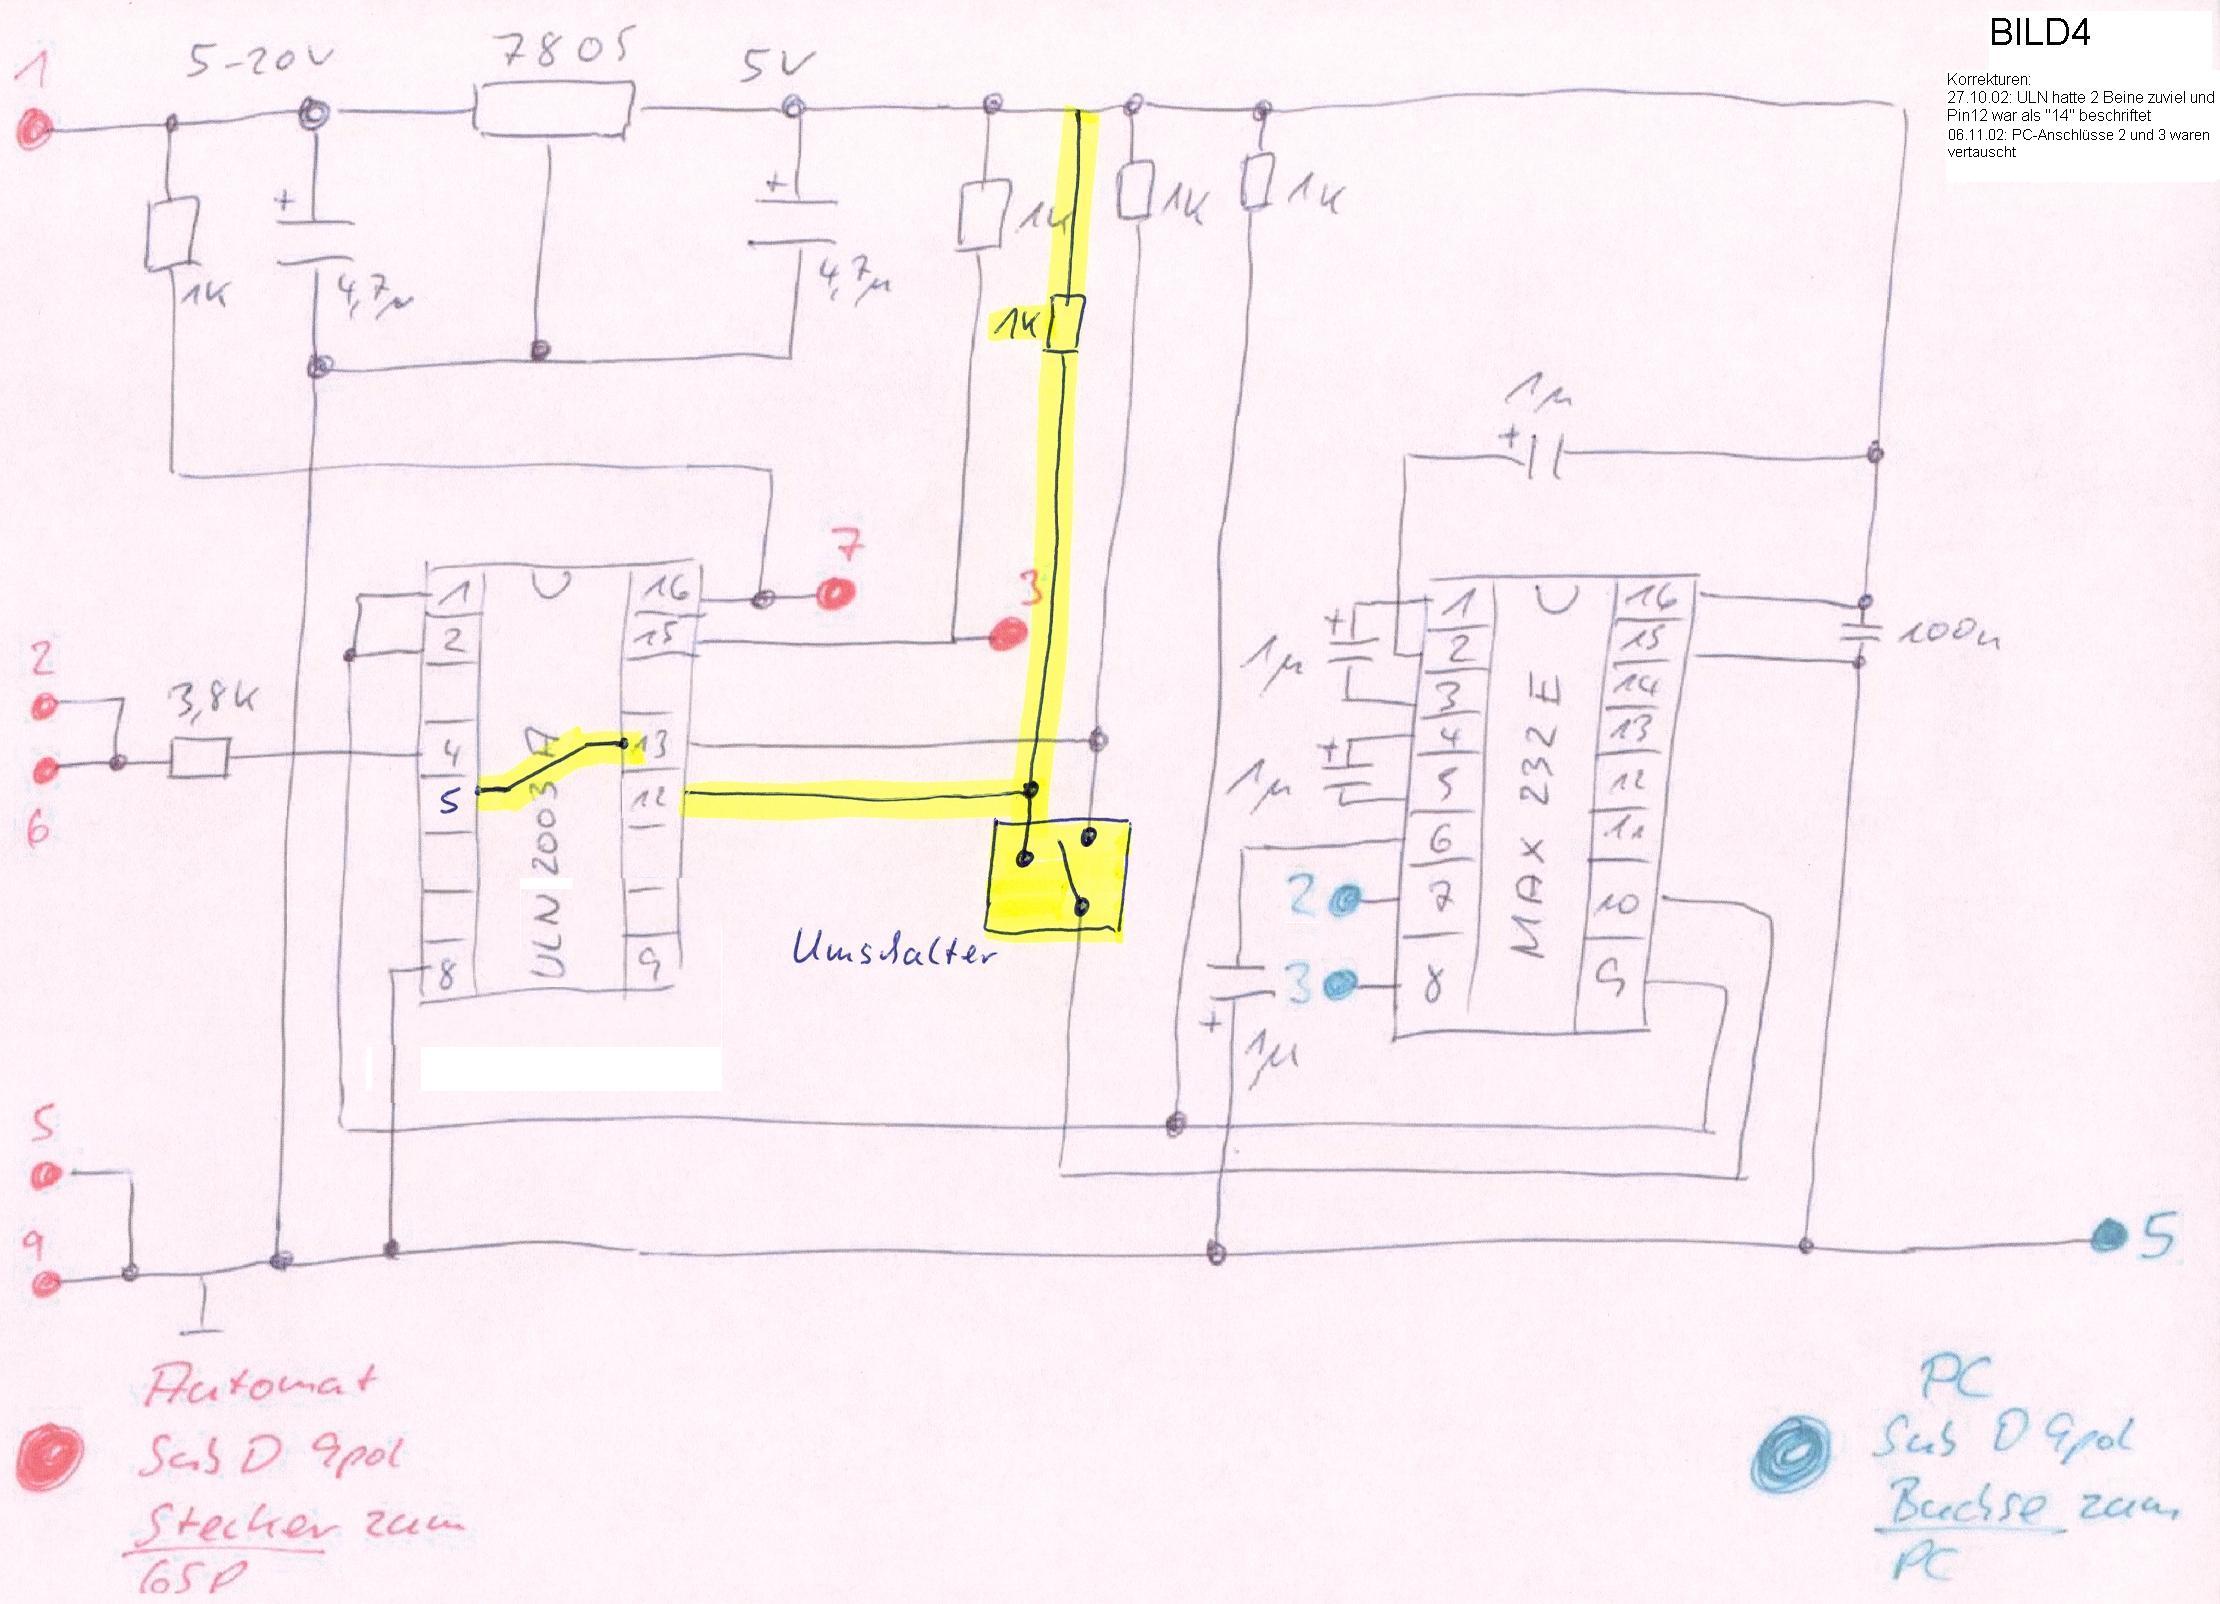 BILD4
Korrekturen:
27.10.02: ULN hatte 2 Beine zuviel und
Pin12 war als "14" beschriftet
06.11.02: PC-Anschlüsse 2 und 3 waren
vertauscht
1
5-20V
7805
5V
+
1K
+
4,7µ
+
4,7µ
1K
1K
1K
1K
1µ
+
7
3
1
2
4
5
8
U
ULN 2003 A
16
15
13
12
9
2
6
3,8K
Umschalter
+
1µ
+
1µ
1
2
3
4
5
6
7
8
U
MAX 232 E
16
15
14
13
12
11
10
9
100n
2
3
+
1µ
5
9
5
Automat
Sub D 9pol
Stecker zum
GSP
PC
Sub D 9pol
Buchse zum
PC